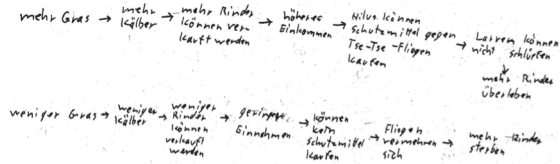 mehr Gras → mehr Kälber → mehr Rinder können verkauft werden → höheres Einkommen → Hilus können schutzmittel gegen Tse-Tse-Fliegen kaufen → Larven können nicht schlüpfen → mehr Rinder überleben
weniger Gras → weniger Kälber → weniger Rinder können verkauft werden → geringere Einnehmen → können kein schutzmittel kaufen → Fliegen vermehren sich → mehr Rinder sterben